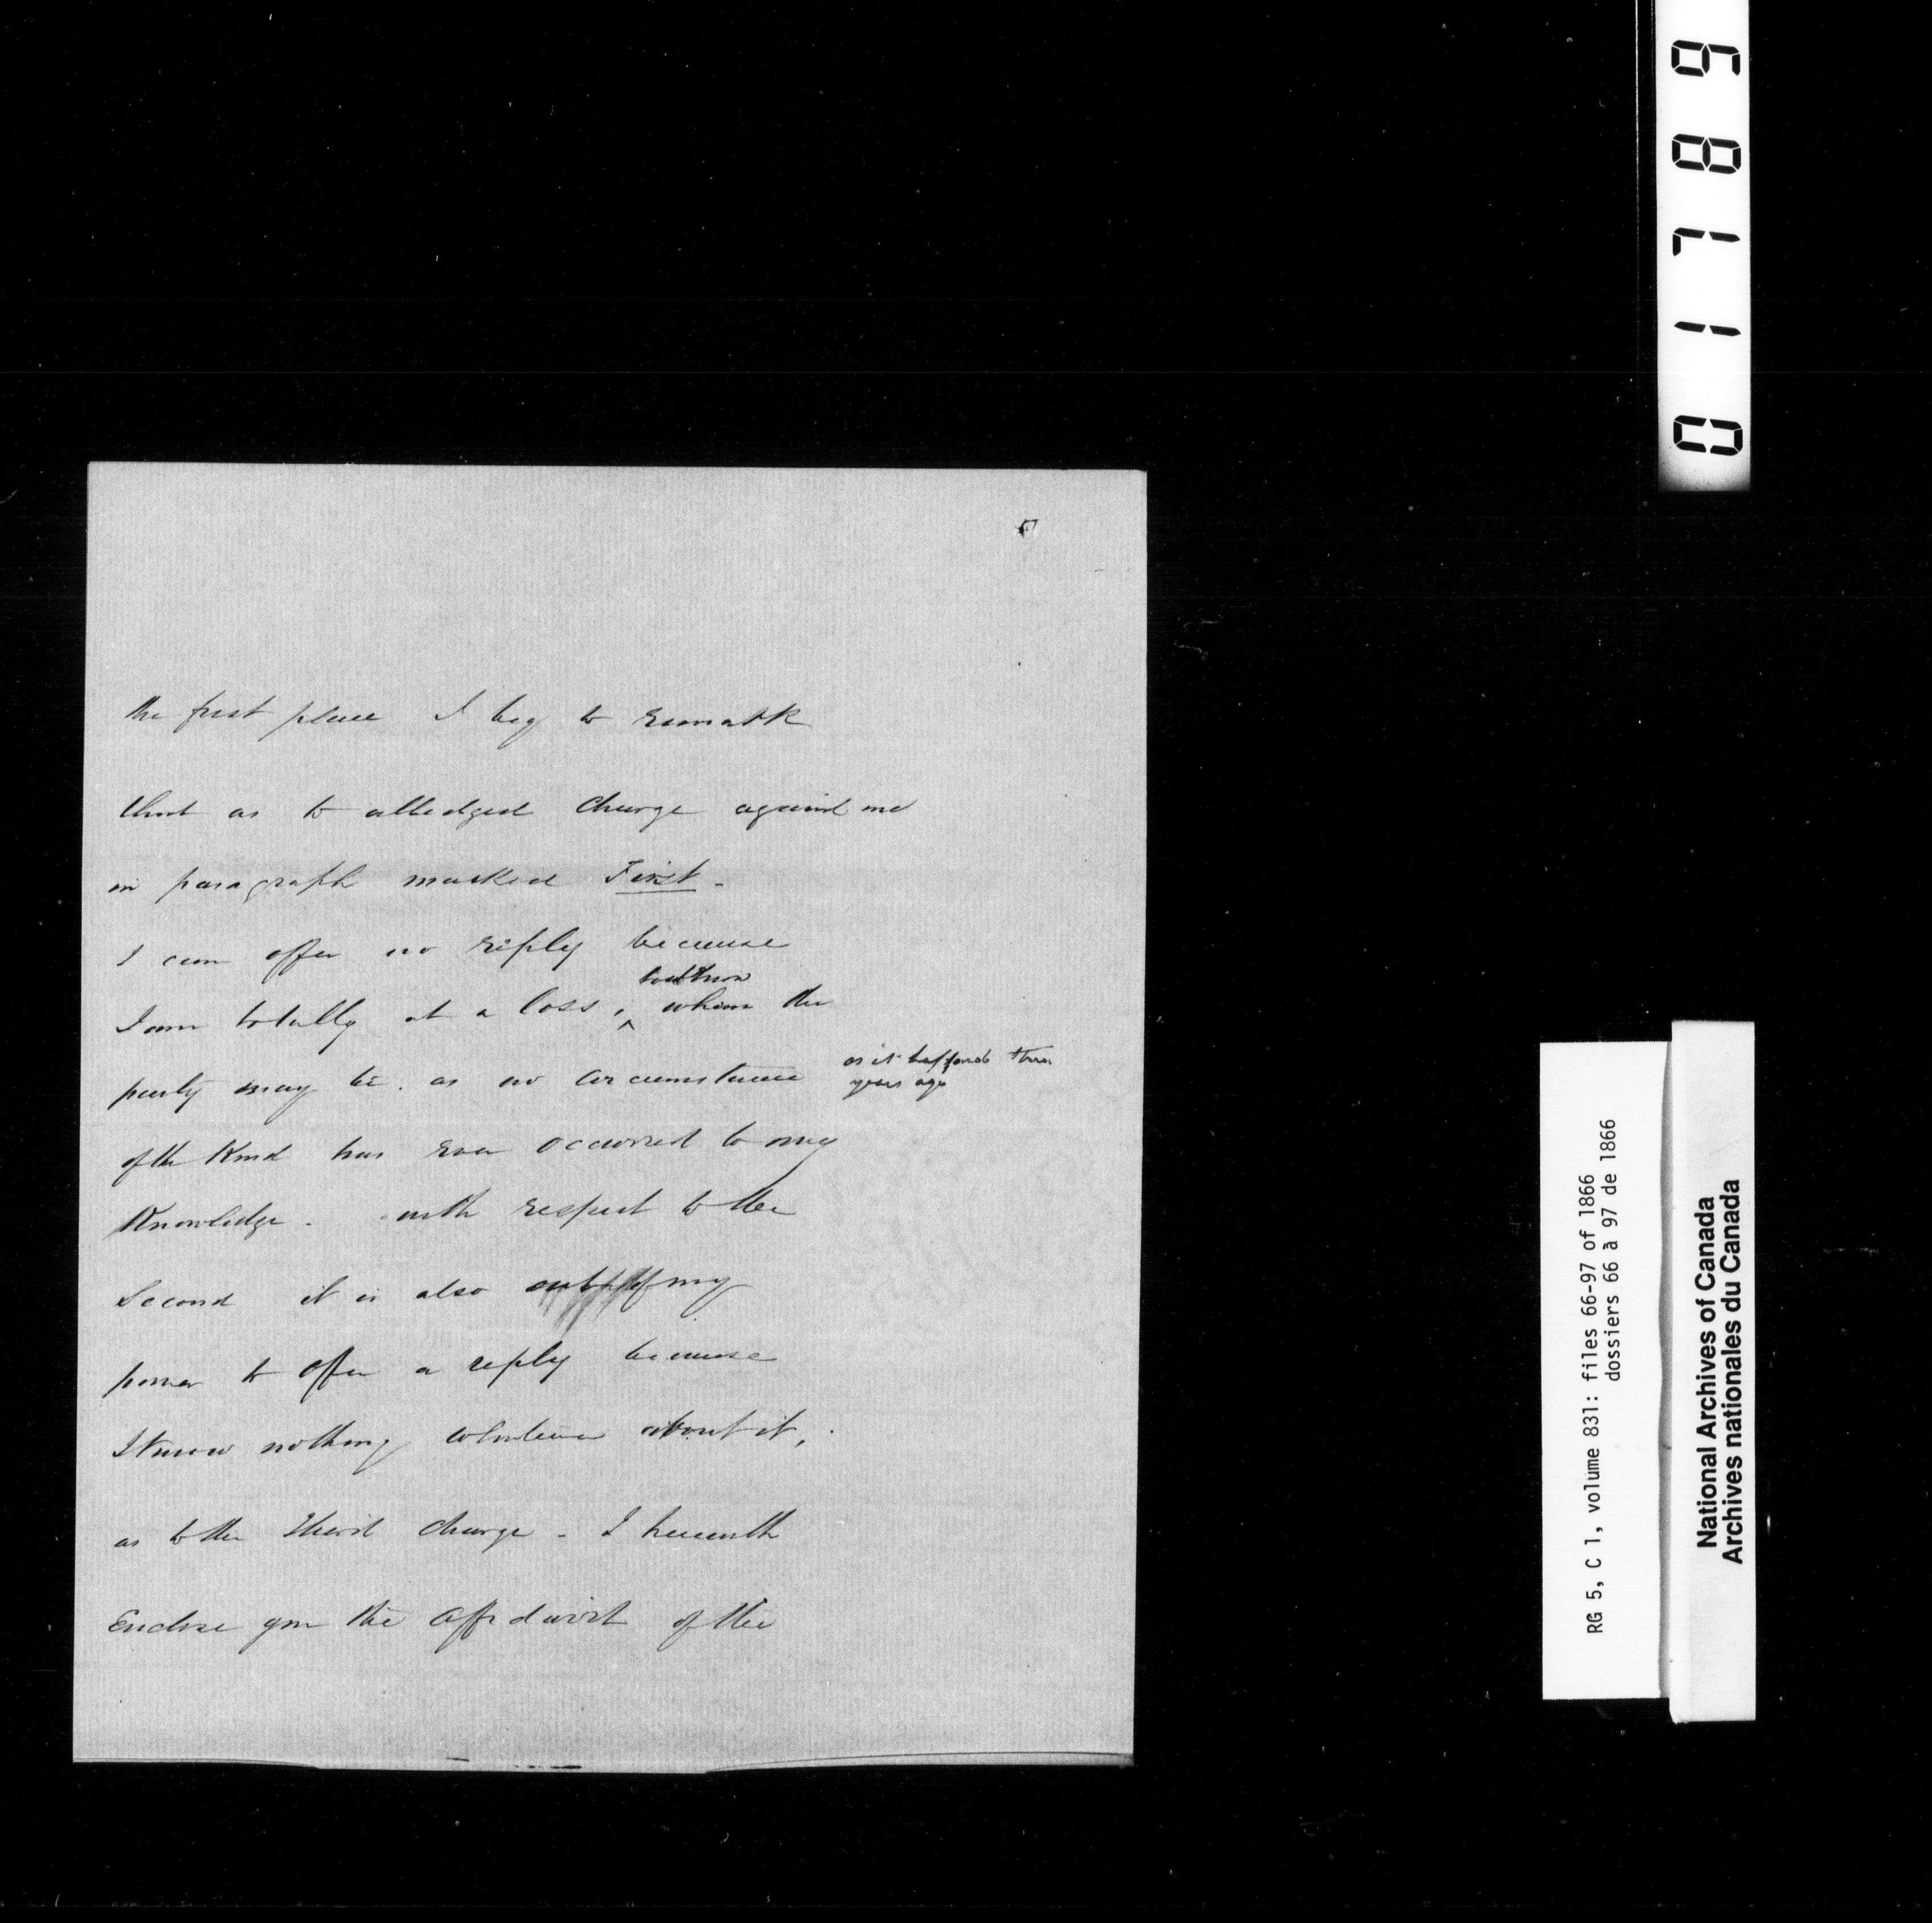 5
the first place I beg to remark
that as to alledged Charge against me
in paragraph marked First -
I can offer no reply because
to know
I am totally at a loss, ^ whom the
party may be. as no circumstance
as it happened three
years ago
of the Kind has ever occurred to my
Knowledge - with respect to the
Second it is also out of my
power to offer a reply because
I know nothing whatever about it,
as to the Third charge - I herewith
Enclose you the Affidavit of the
01789
RG 5, C 1, volume 831: files 66-97 of 1866
dossiers 66 à 97 de 1866
National Archives of Canada
Archives nationales du Canada